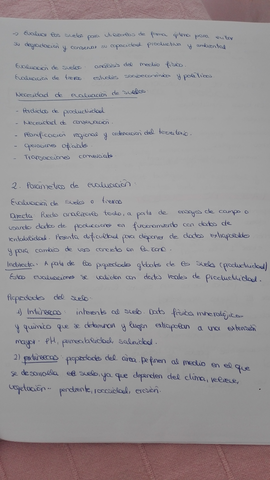 → Evaluar los suelos para utilizarlos de forma óptima para evitar
su degradación y conservar su capacidad productiva y ambiental
Evaluación de suelos: análisis del medio físico
Evaluación de tierras: estudios socioeconómicos y políticos
Necesidad de evaluación de suelos
- Pérdidas de productividad
- Necesidad de conservación
- Planificación regional y ordenación del territorio
- Opciones oficiales
- Transacciones comerciales
2. Parámetros de evaluación
Evaluación de suelo o tierras
Directa: Puede analizarse todo, a partir de ensayos de campo o
usando datos de producciones en funcionamiento con datos de
rentabilidad. Resulta dificultad para disponer de datos extrapolables
y para cambios de usos concretos
Indirecta: A partir de las propiedades globales de los suelos (productividad)
Estas evaluaciones se validan con datos reales de productividad.
Propiedades del suelo
1) Intrínsecas: inherente al suelo. Datos físicos, mineralógicos
y químicos que se determinan y luego extrapolan a una extensión
mayor. PH, permeabilidad, salinidad.
2) extrínsecas: propiedades del clima. Refieren al medio en el que
se desarrolla el suelo ya que dependen del clima, relieve,
vegetación - pendiente, rocosidad, erosión.